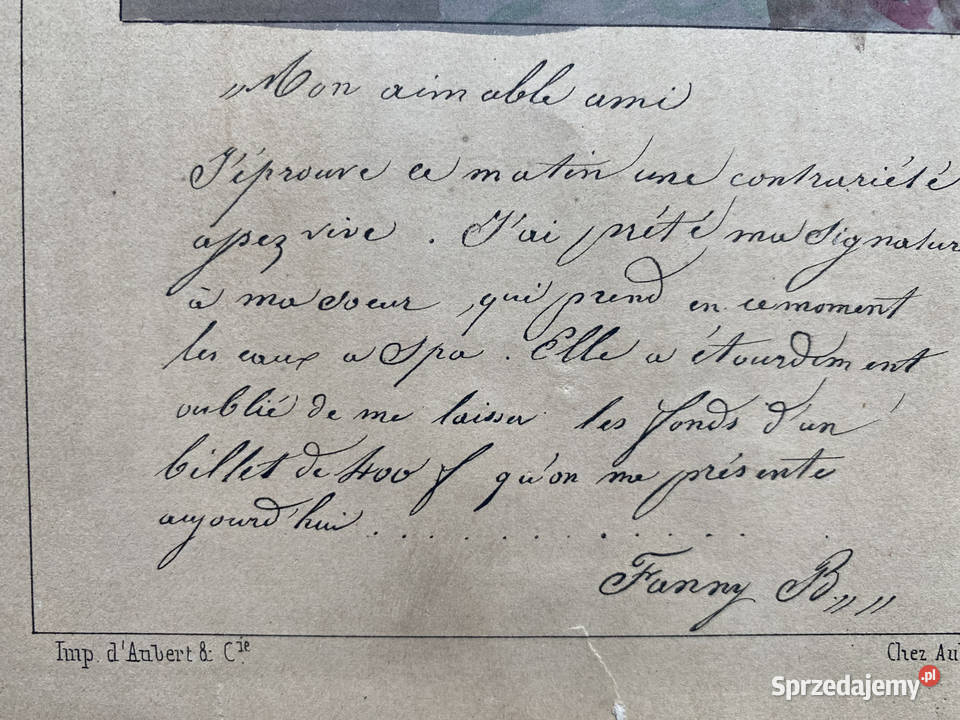 „Mon aimable ami
J'éprouve ce matin une contrariété
assez vive. J'ai prêté ma signatur
à ma soeur, qui prend en ce moment
les eaux a Spa. Elle a étourdiment
oublié de me laisser les fonds d'un
billet de 400 f qu'on me présente
aujourd'hui..............
Fanny B„ „
Imp. d'Aubert & Cie.
Chez Au
Sprzedajemy.pl